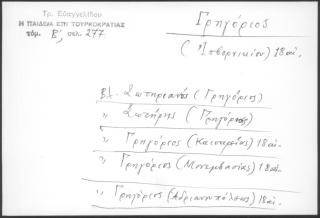 Τρ. Εὐαγγελίδου
Η ΠΑΙΔΕΙΑ ΕΠΙ ΤΟΥΡΚΟΚΡΑΤΙΑΣ
τόμ. Β', σελ. 277
Γρηγόριος
18 αἰ.
Βλ. Σωτηριανός (Γρηγόριος)
" Σωτήρης (Γρηγόριος)
" Γρηγόριος (Καισαρείας) 18 αἰ.
" Γρηγόριος (Μονεμβασίας) 18 αἰ.
" Γρηγόριος (Ἀδριανουπόλεως) 18 αἰ.